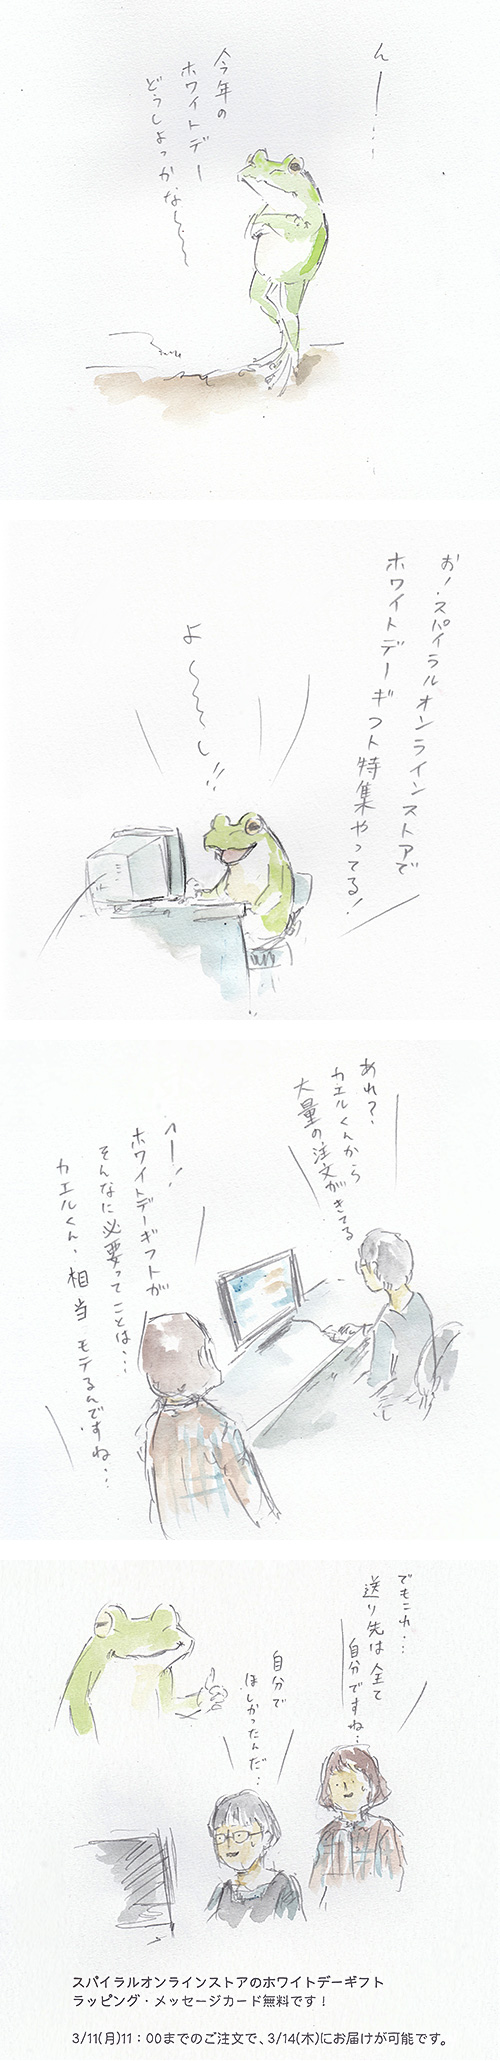 んー…
今年の
ホワイトデー
どうしよっかな〜〜〜
お！スパイラルオンラインストアで
ホワイトデーギフト特集やってる！
よ〜〜〜し!!
あれ？
カエルくんから
大量の注文がきてる
へー！
ホワイトデーギフトが
そんなに必要ってことは…
カエルくん、相当モテるんですね…
でもこれ…
送り先は全て
自分ですね…
自分で
ほしかったんだ…
スパイラルオンラインストアのホワイトデーギフト
ラッピング・メッセージカード無料です！
3/11(月)11：00までのご注文で、3/14(木)にお届けが可能です。